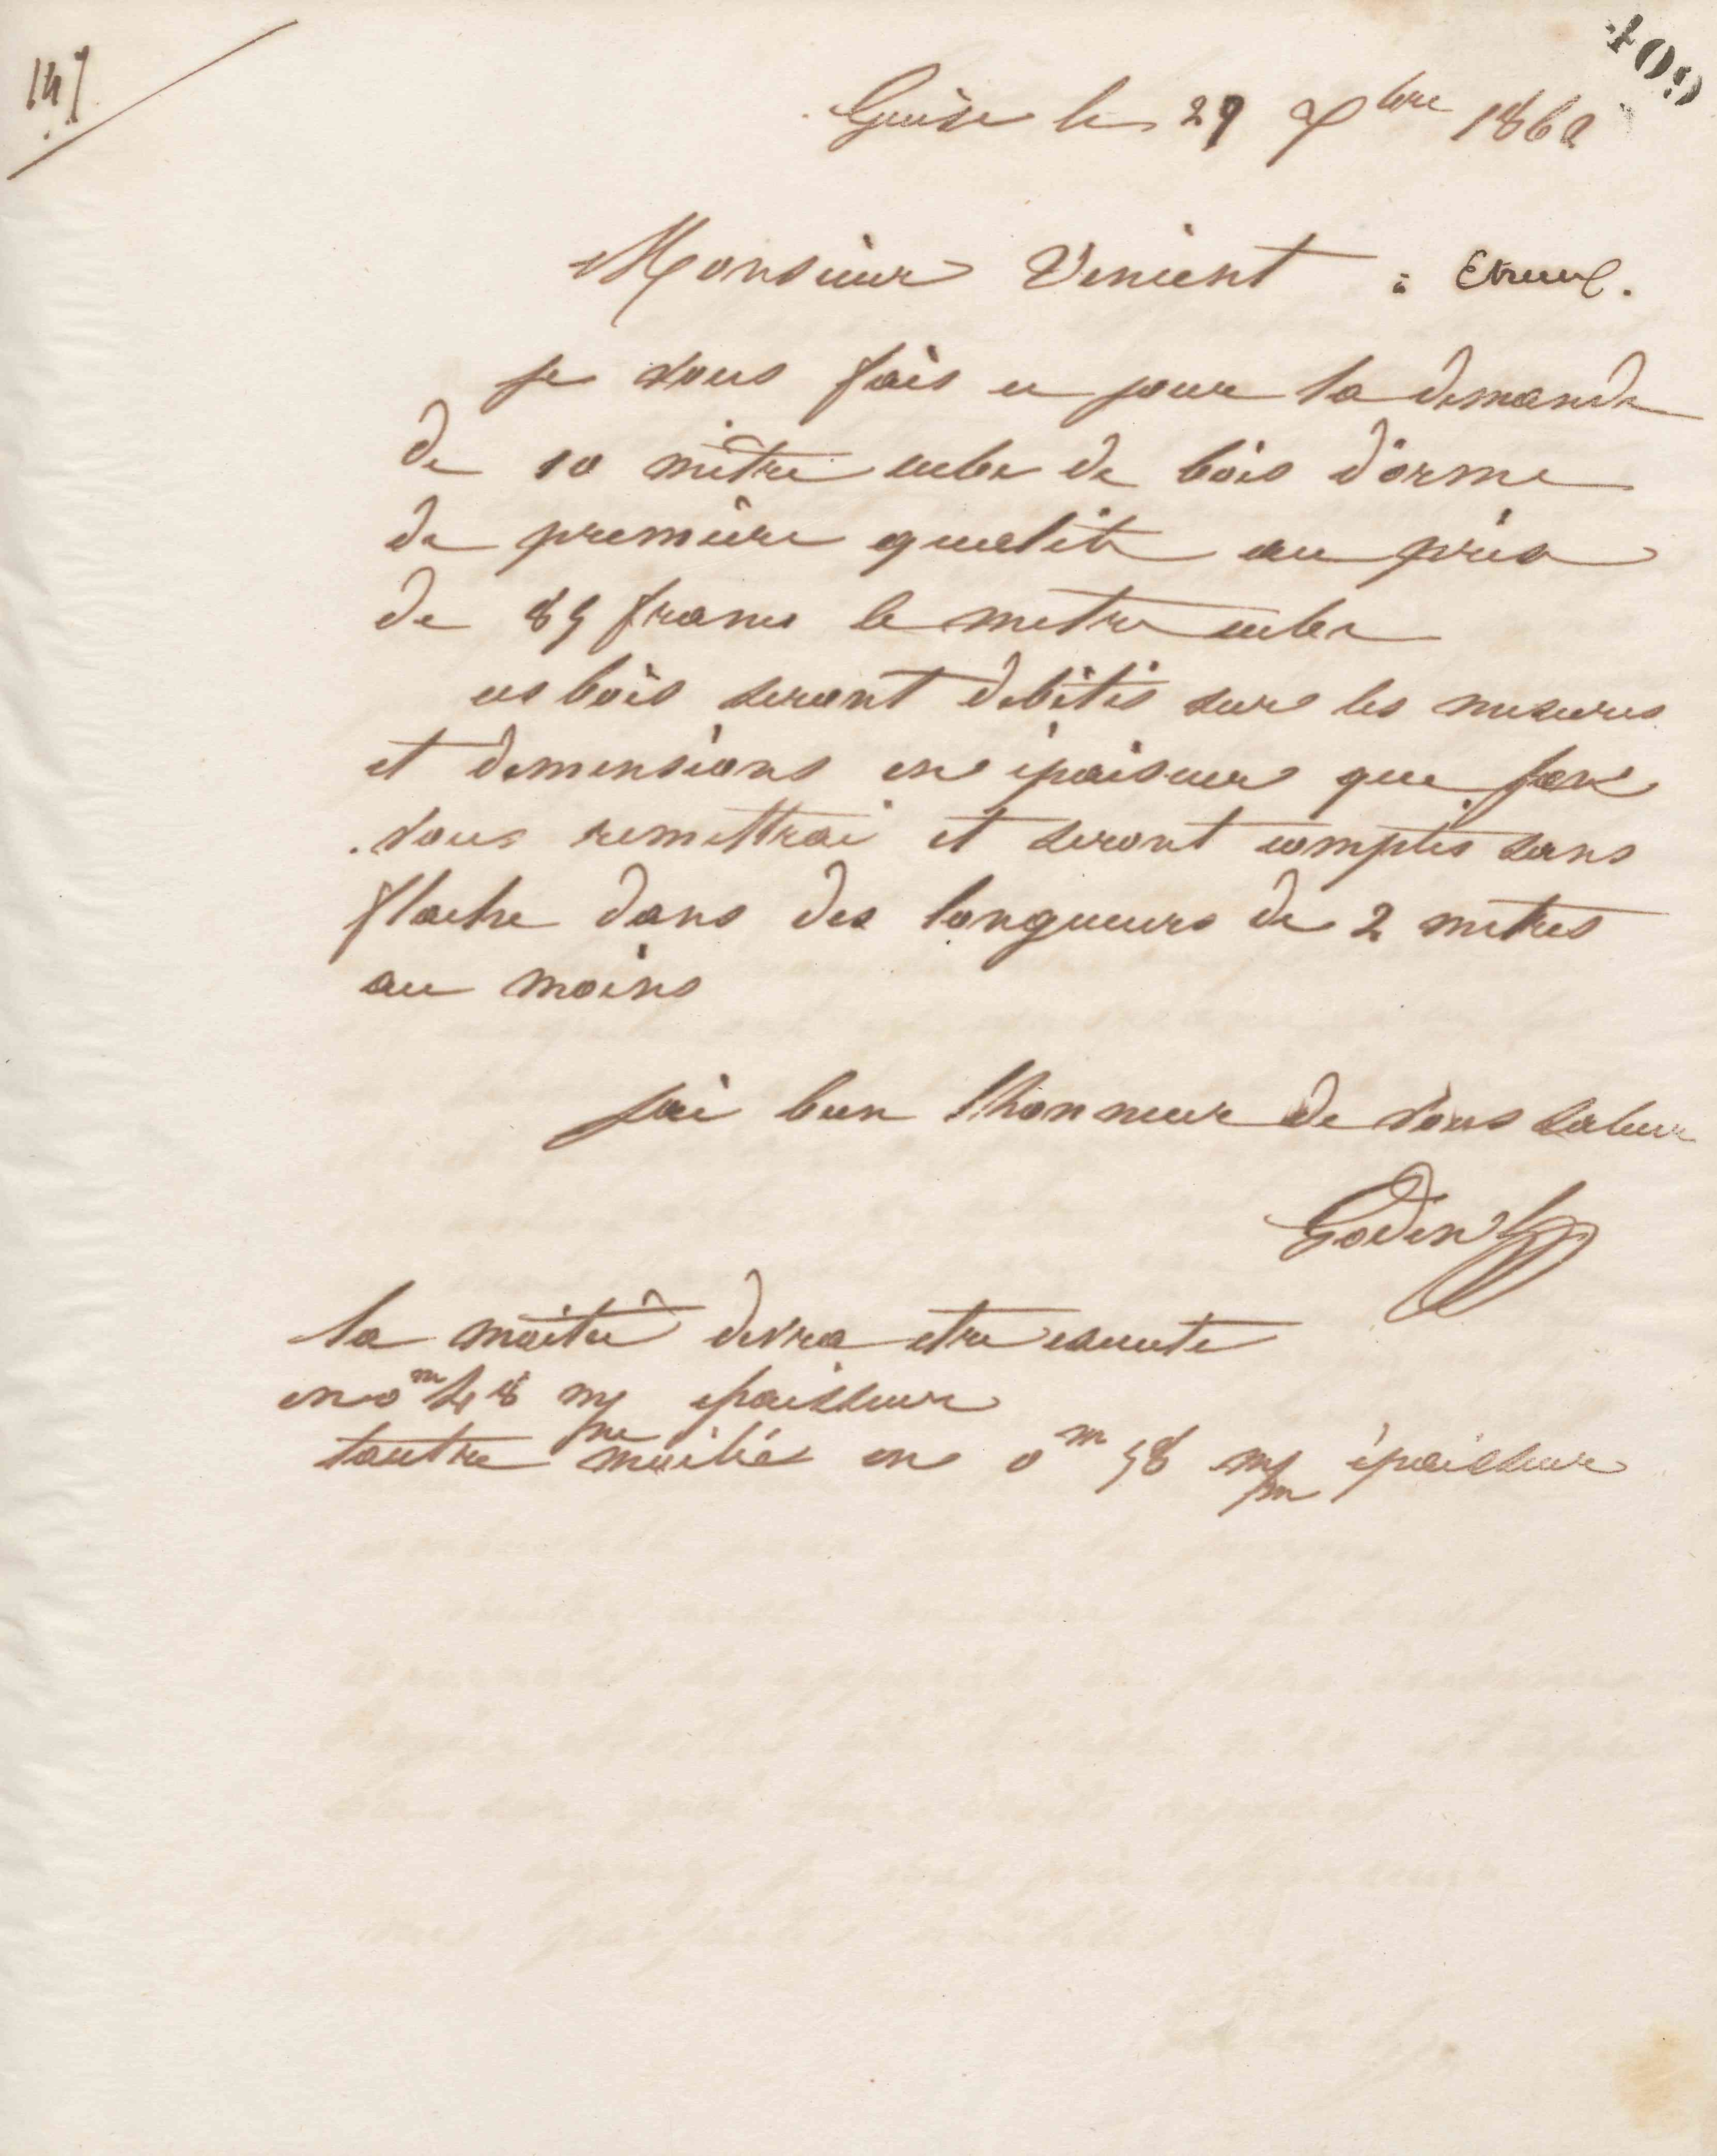 147
409
Guise le 29 Xbre 1862
Monsieur Venient à Etreux.
je vous fais ce jour la demande
de 10 mètre cube de bois d'orme
de première qualité au prix
de 85 francs le metre cube
ces bois seront debités sur les mesures
et dimensions en épaiseur que je
vous remettrai et seront comptés sans
flache dans des longueurs de 2 metres
au moins
jai bien lhonneur de vous saluer
Godin
la moitié devra etre
en 0m 48 m/m epaisseur
lautre moitié en 0m 58 m/m épaisseur